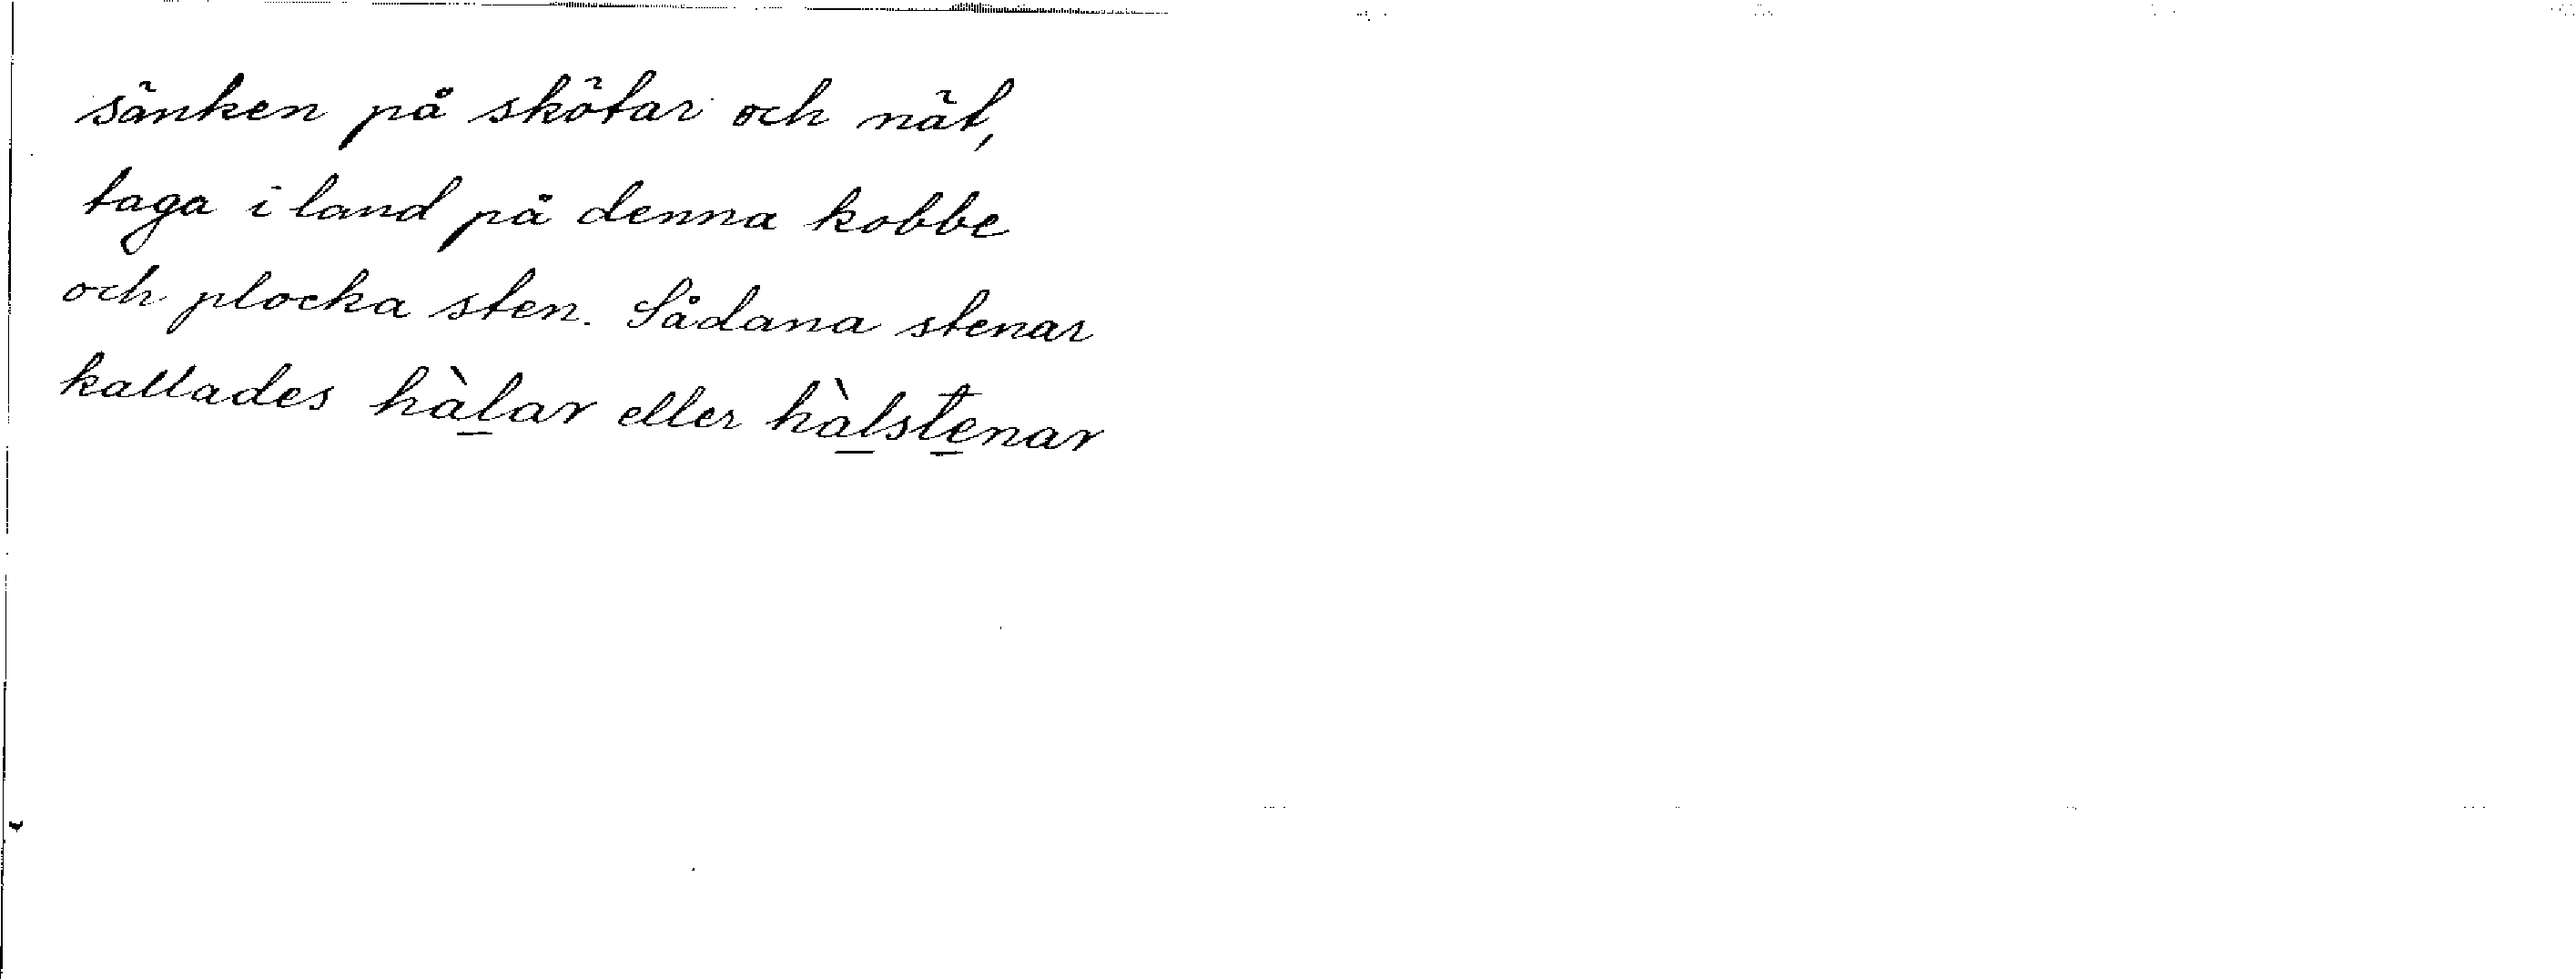 sänken på skötar och nät,
taga i land på denna kobbe
och plocka sten. Sådana stenar
kallades hàlar eller hàlstenar